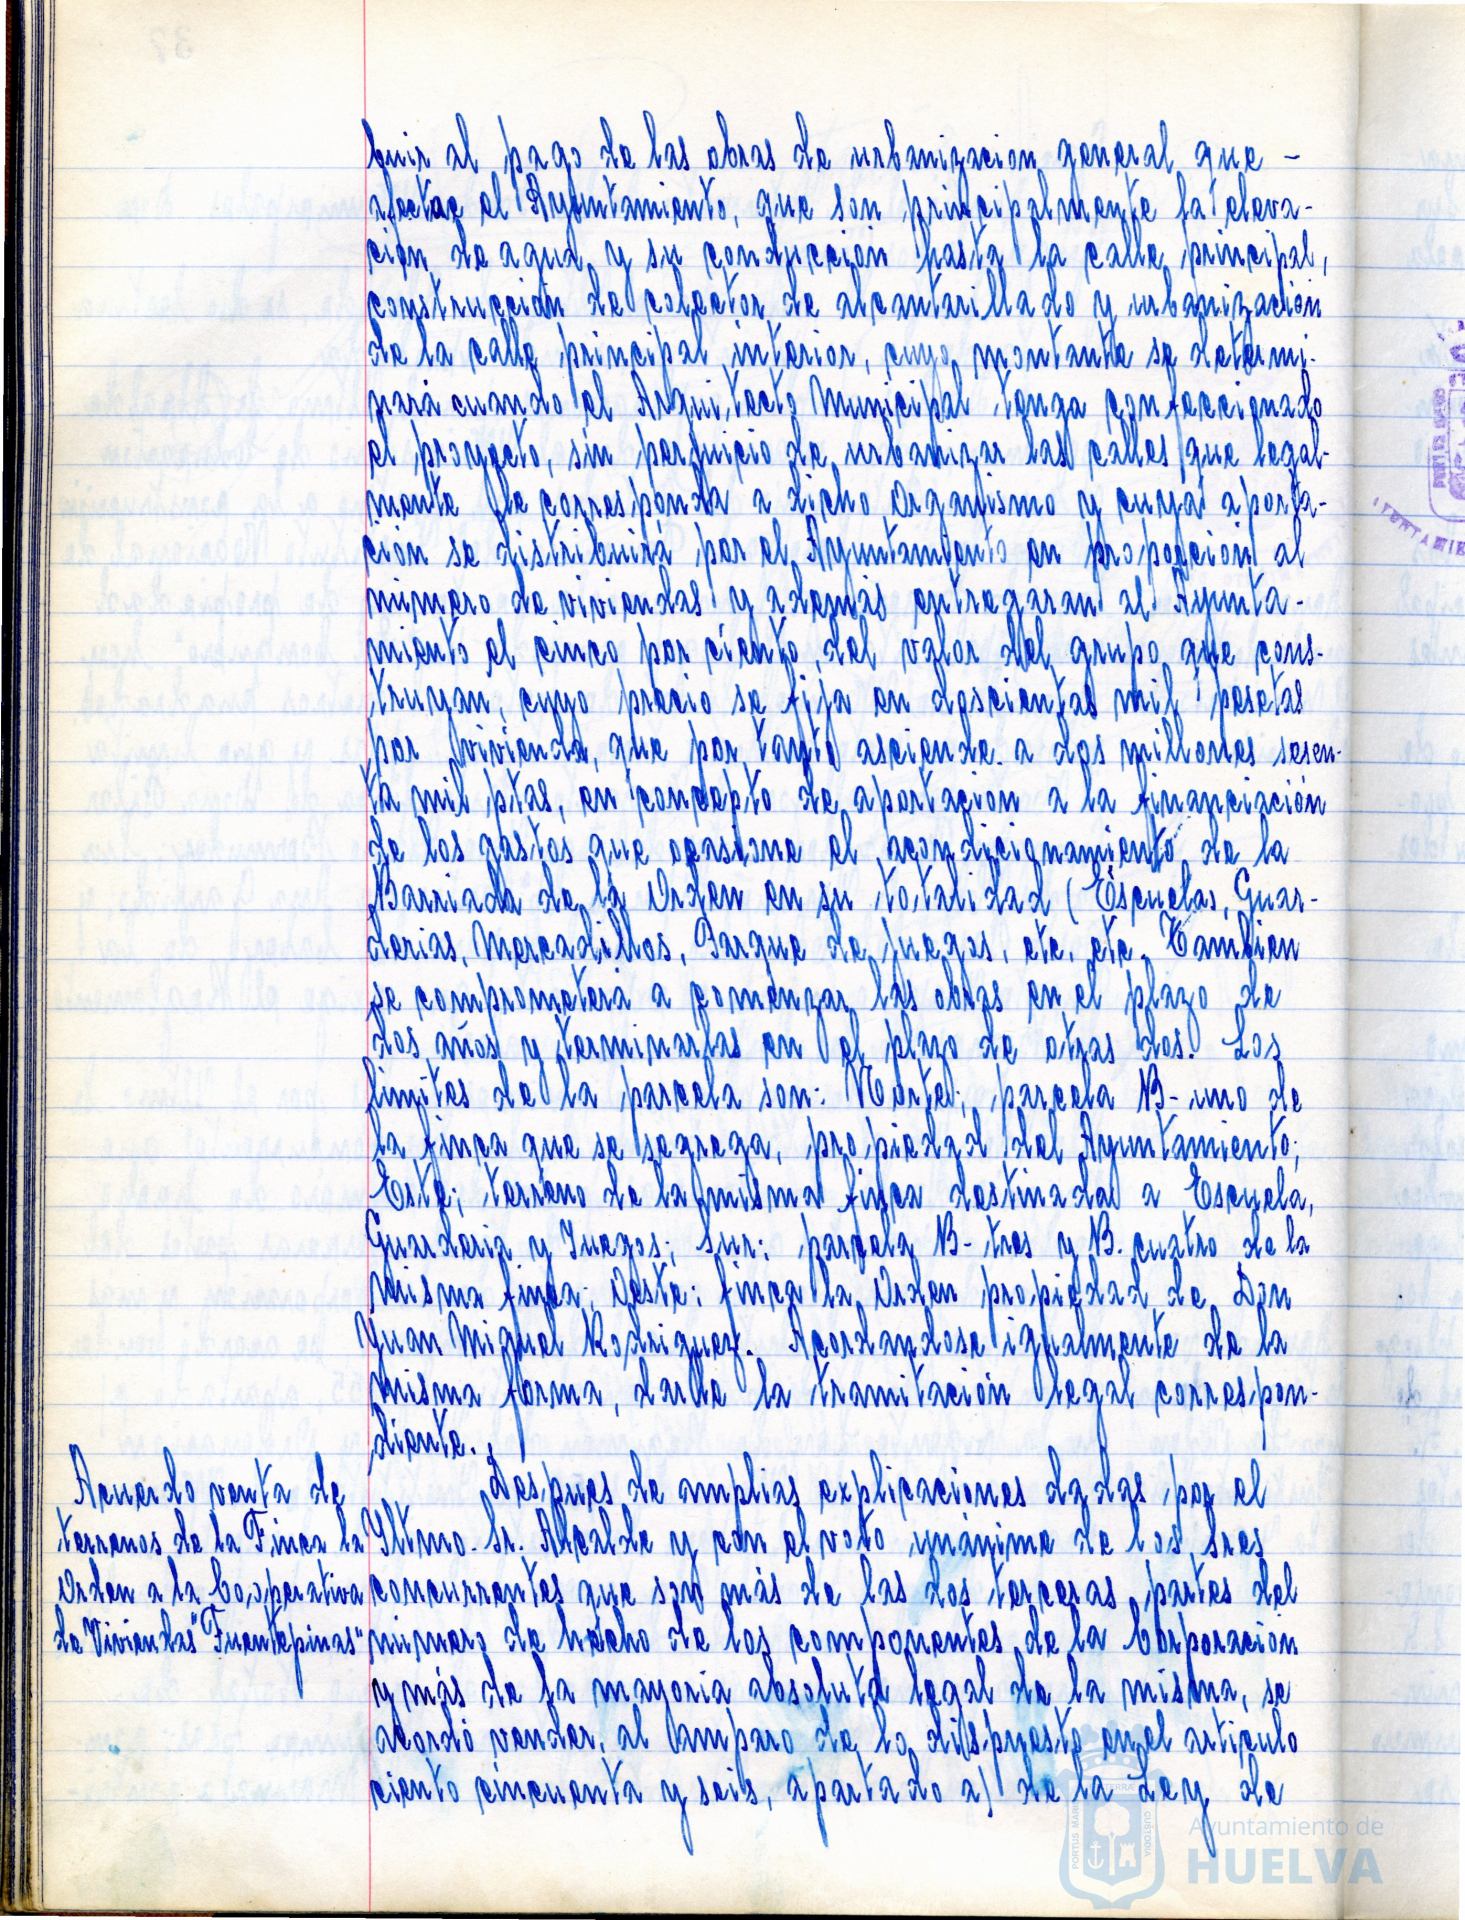 buir al pago de las obras de urbanizacion general que -
afectae el Ayuntamiento, que son principalmente la eleva-
ción de agua y su conducción hasta la calle principal,
construcción de colector de alcantarillado y urbanización
de la calle principal interior, cuyo montante se determi-
nará cuando el Arquitecto Municipal tenga confeccionado
el proyecto, sin perjuicio de urbanizar las calles que legal-
mente le corresponda a dicho Organismo y cuya aporta-
ción se distribuirá por el Ayuntamiento en proporcion al
número de viviendas y además entregaran al Ayunta-
miento el cinco por ciento, del valor del grupo que cons-
truyan, cuyo precio se fija en doscientas mil pesetas
por vivienda, que por tanto asciende a dos millones sesen-
ta mil ptas, en concepto de aportación a la financiación
de los gastos que ocasione el acondicionamiento de la
Barriada de la Orden en su totalidad (Escuelas, Guar-
derias, Mercadillos, Parque de juegos, etc, etc. Tambien
se comprometerá a comenzar las obras en el plazo de
dos años y terminarlas en el plazo de otras dos. Los
limites de la parcela son: Norte; parcela B- uno de
la finca que se segrega, propiedad del Ayuntamiento;
Este; terreno de la misma finca destinada a Escuela,
Guarderia y Juegos; Sur; parcela B- tres y B. cuatro de la
misma finca; Oeste: finca la Orden propiedad de Don
Juan Miguel Rodriguez. Acordandose igualmente de la
misma forma, darle la tramitación legal correspon-
diente.
Acuerdo venta de
terrenos de la Finca la
Orden a la Cooperativa
de Viviendas "Fuentepinas"
Despues de amplias explicaciones dadas por el
Yltmo. Sr. Alcalde y con el voto unánime de los sres
concurrentes que son más de las dos terceras partes del
número de hecho de los componentes de la Corporación
y más de la mayoria absoluta legal de la misma, se
acordó vender, al amparo de lo dispuesto en el articulo
ciento cincuenta y seis, apartado a) de la Ley de
Ayuntamiento de
HUELVA